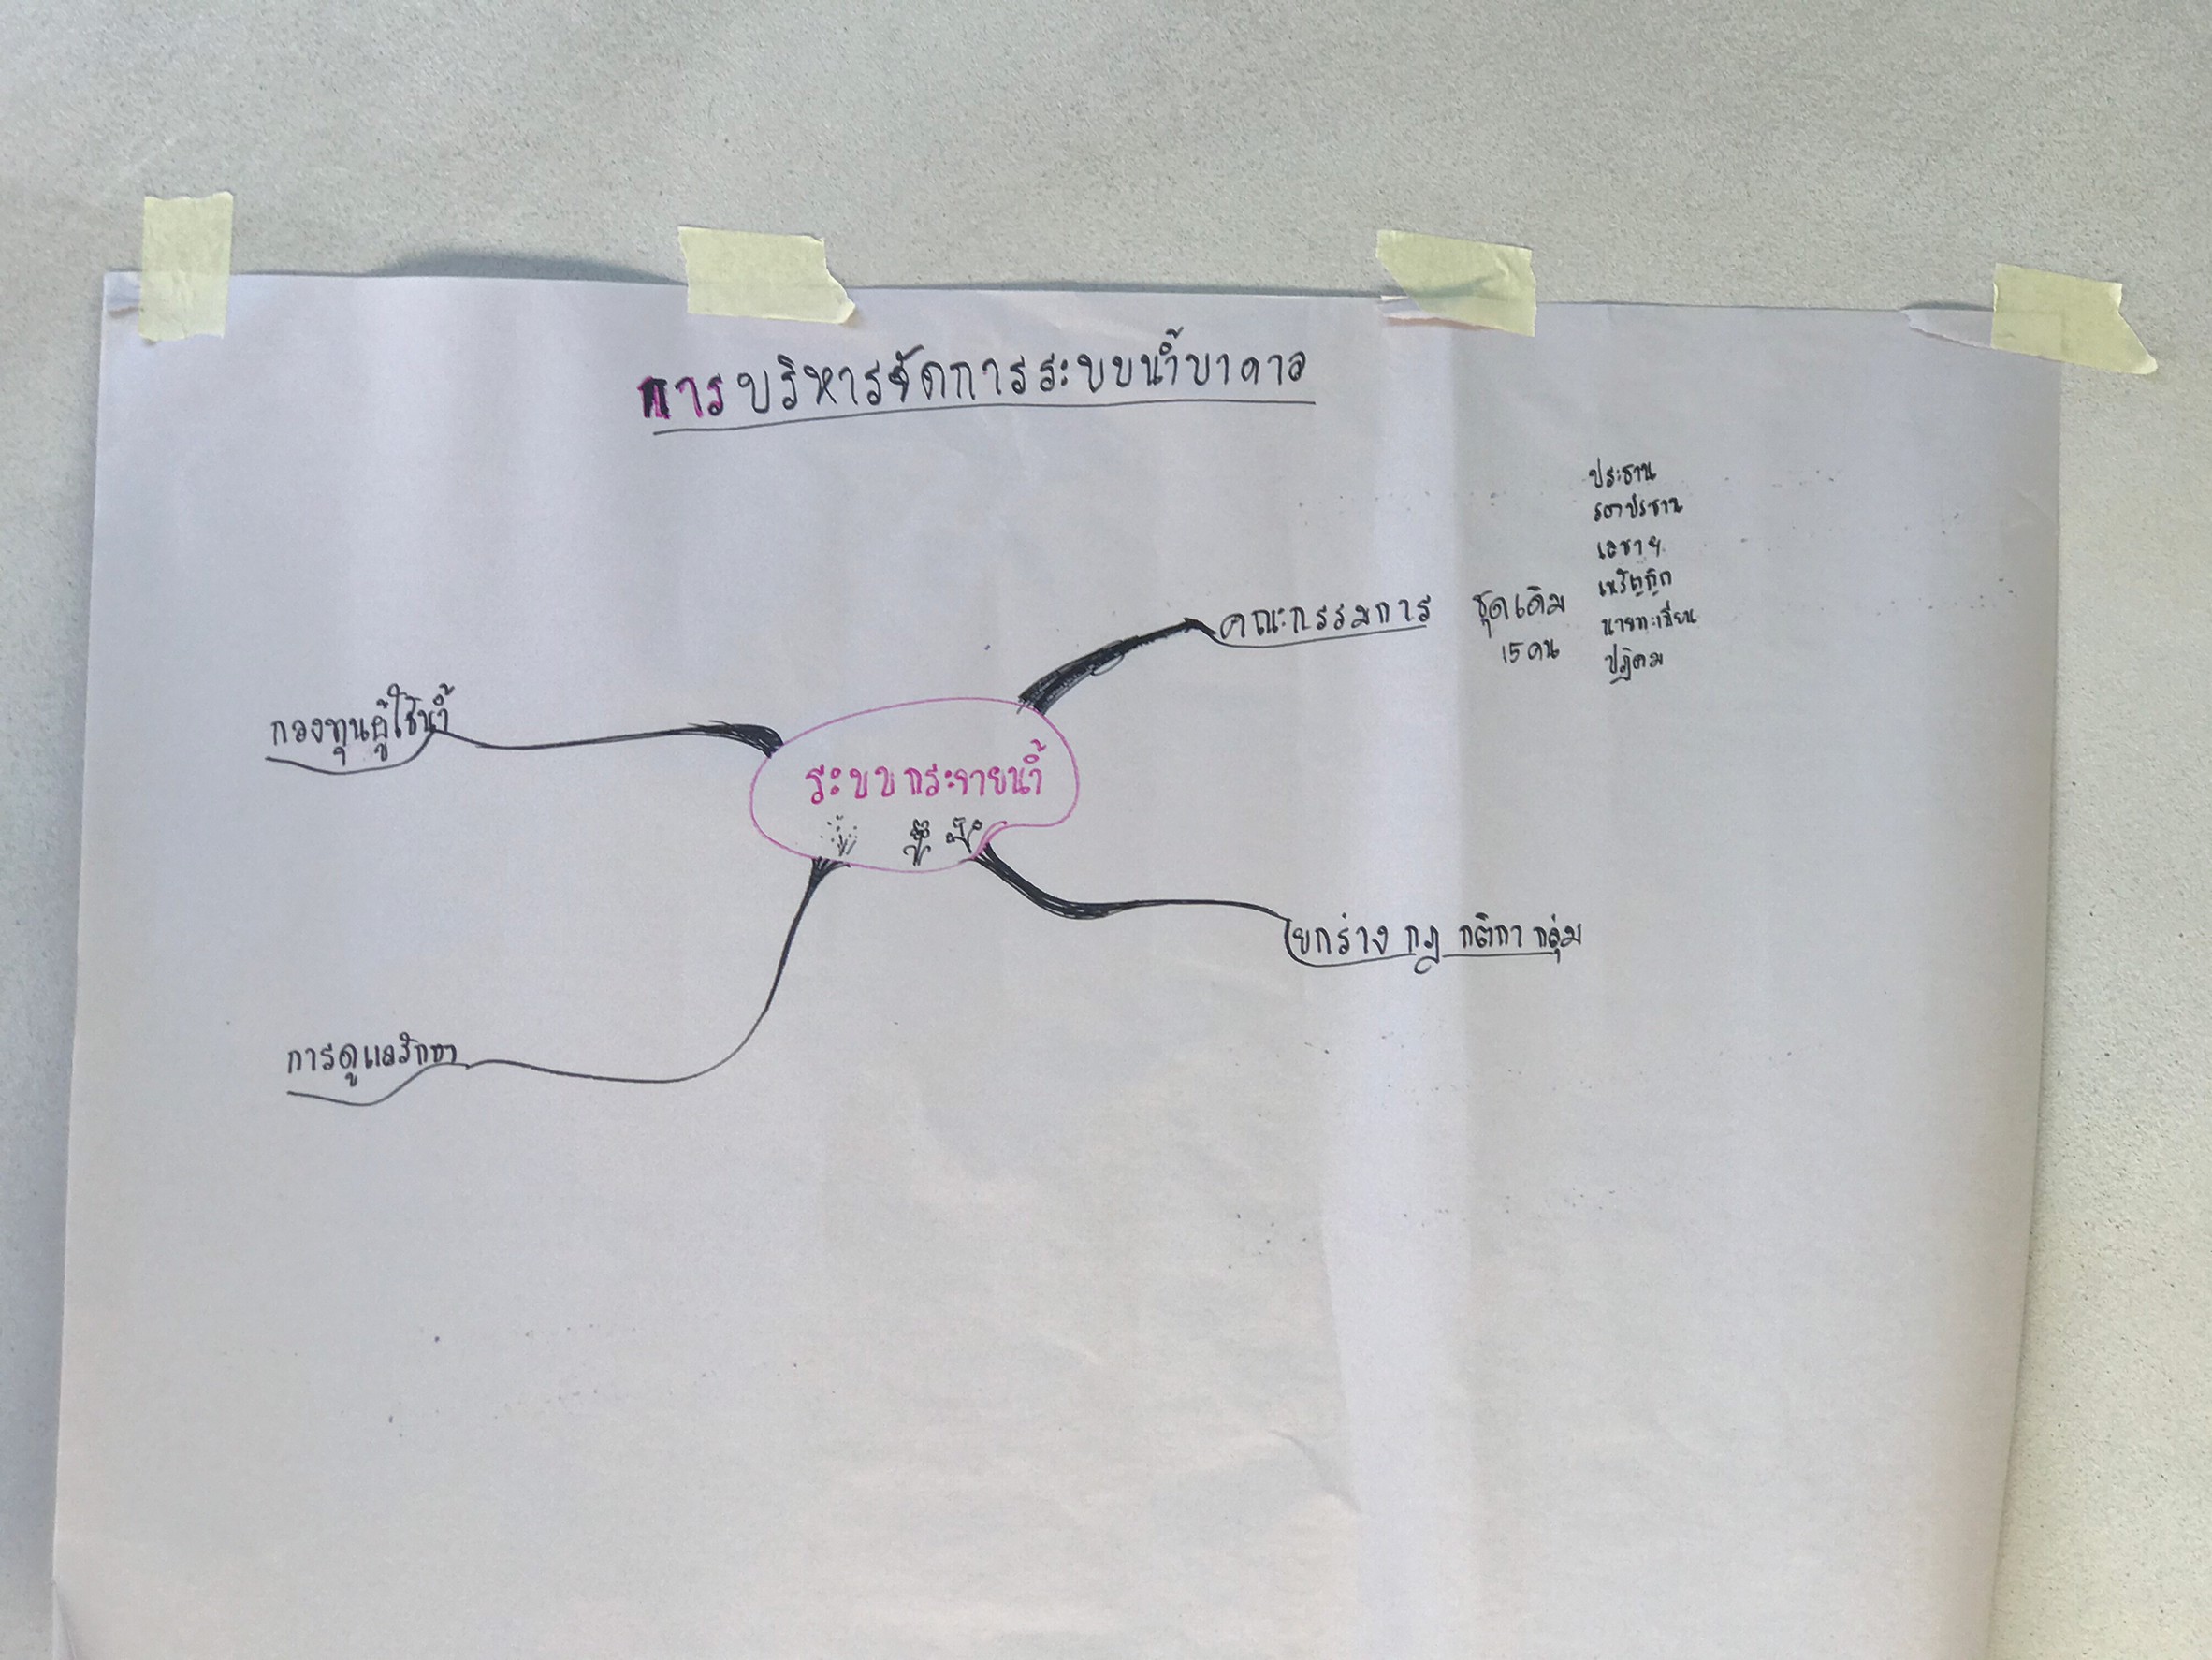 การบริหารจัดการระบบน้ำบาดาล
ประธาน
รองประธาน
เลขาฯ
เหรัญญิก
นายทะเบียน
ปฏิคม
คณะกรรมการ ชุดเดิม
15 คน
กองทุนผู้ใช้น้ำ
ระบบกระจายน้ำ
ยกร่าง กฎ กติกา กลุ่ม
การดูแลรักษา